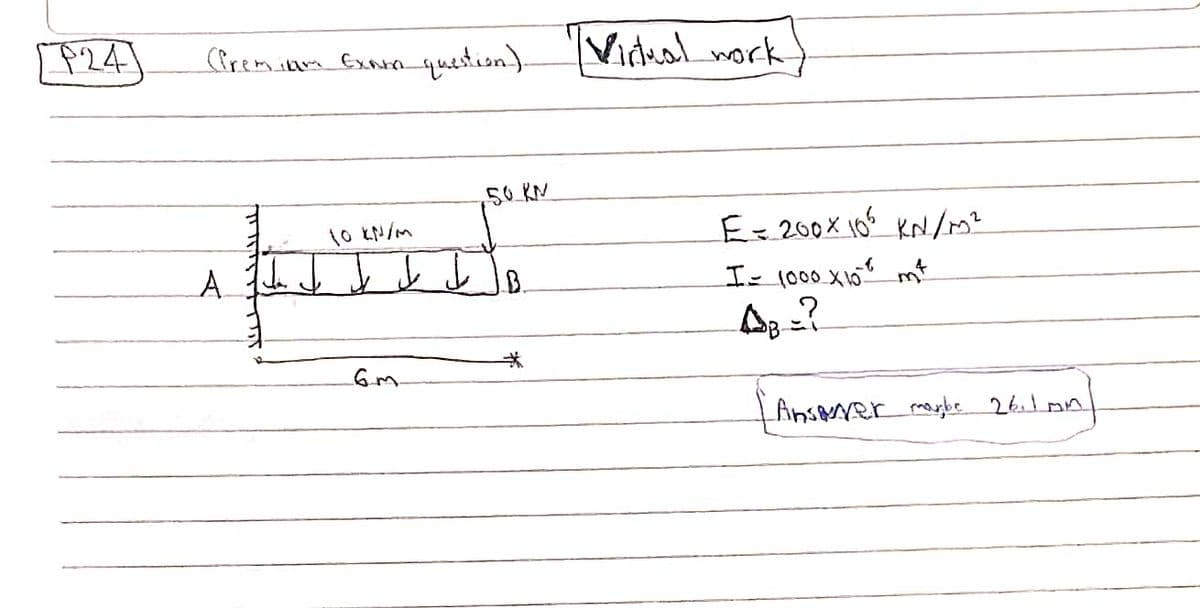 P24 (Premiam Exam question) Virtual work
50 KN
10 KN/m
A B
6m
E = 200 X 10⁶ KN/m²
I = 1000 X10⁻⁶ m⁴
ΔB =?
Answer maybe 26.1 mm